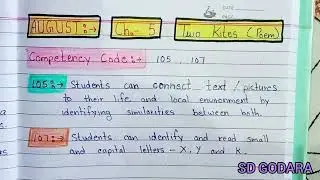 AUGUST:→ Ch.- 5 Two Kites (Poem)
Competency Code:→ 105, 107
105:→ Students can connect text / pictures
to their life and local environment by
identifying similarities between both.
107:→ Students can identify and read small
and capital letters - X, Y and K.
SD GODARA